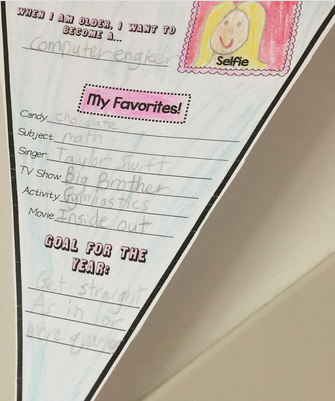 WHEN I AM OLDER, I WANT TO
BECOME A...
computer engteer
Selfie
My Favorites!
Candy chocolate
Subject math
Singer Taylor Swift
TV Show Big Brother
Activity Gymnastics
Movie Inside out
GOAL FOR THE
YEAR:
Get straight
As in 1 or
more quarter